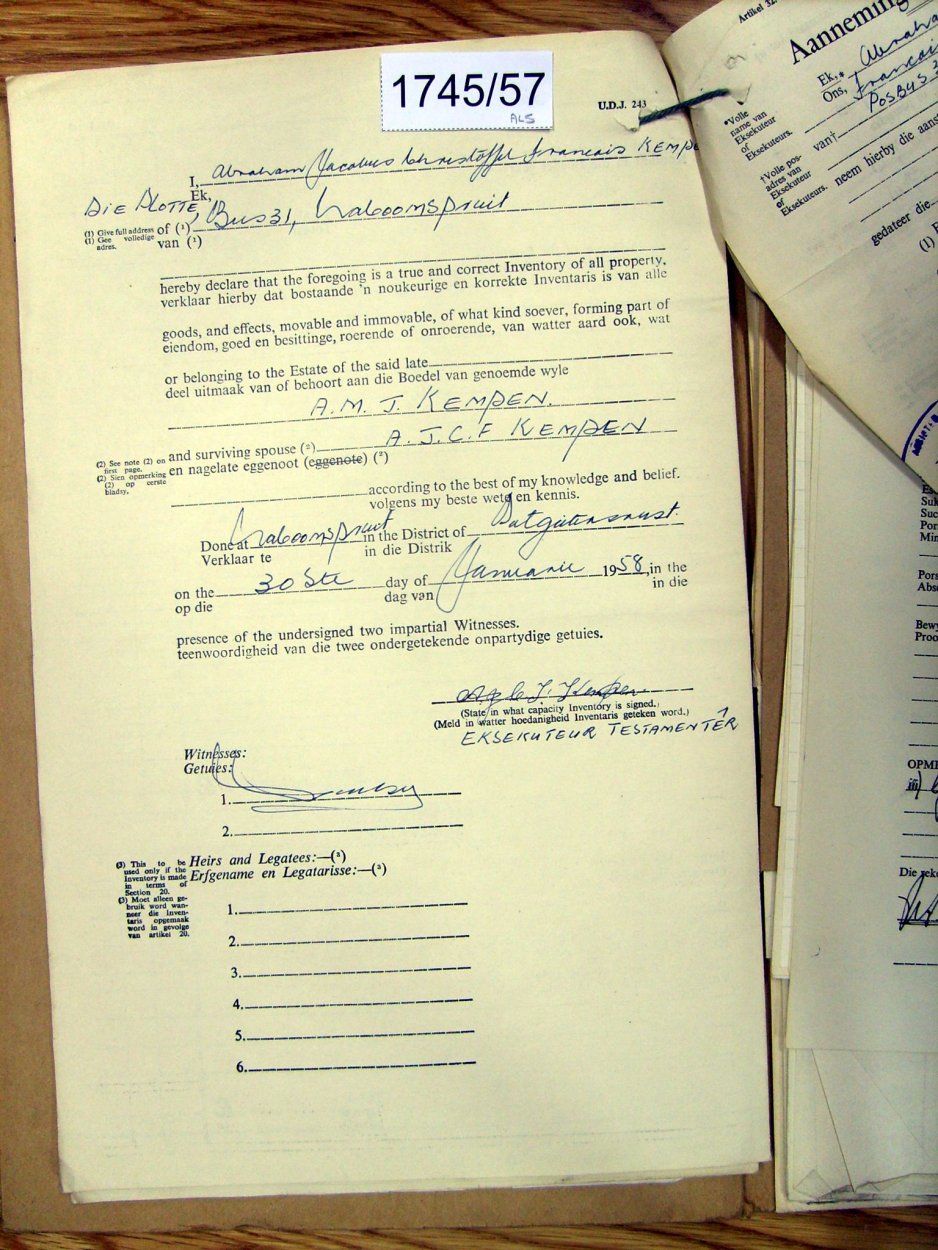 1745/57
ALS
U.D.J. 243
I, Abraham Jacobus Christoffel Francois KEMPE
Ek,
DIE PLOTTE,
(1) Give full address of (¹) Bus 31, Naboomspruit
(1) Gee volledige adres. van (¹)
hereby declare that the foregoing is a true and correct Inventory of all property,
verklaar hierby dat bostaande 'n noukeurige en korrekte Inventaris is van alle
goods, and effects, movable and immovable, of what kind soever, forming part of
eiendom, goed en besittinge, roerende of onroerende, van watter aard ook, wat
or belonging to the Estate of the said late
deel uitmaak van of behoort aan die Boedel van genoemde wyle
A. M. J. KEMPEN.
and surviving spouse (²) A. J. C. F KEMPEN
en nagelate eggenoot (eggenote) (²)
(2) See note (2) on
first page.
(2) Sien opmerking
(2) op eerste
bladsy,
according to the best of my knowledge and belief.
volgens my beste wete en kennis.
Done at Naboomspruit in the District of Potgietersrust
Verklaar te in die Distrik
on the 30 Ste day of Januarie 1958, in the
op die dag van in die
presence of the undersigned two impartial Witnesses.
teenwoordigheid van die twee ondergetekende onpartydige getuies.
(State in what capacity Inventory is signed.)
(Meld in watter hoedanigheid Inventaris geteken word.)
EKSEKUTEUR TESTAMENTÊR
Witnesses:
Getuies:
1.
2.
(3) This to be
used only if the
Inventory is made
in terms of
Section 20.
(3) Moet alleen ge-
bruik word wan-
neer die Inven-
taris opgemaak
word in gevolge
van artikel 20.
Heirs and Legatees:—(³)
Erfgename en Legatarisse:—(³)
1.
2.
3.
4.
5.
6.
Artikel 32.
Aanneming
Ek,* Abraha
Ons, Francoi
POSBUS 3
*Volle
naam van
Eksekuteur
of
Eksekuteurs.
van†
†Volle pos-
adres van
Eksekuteur
of
Eksekuteurs.
neem hierby die aans
gedateer die
(1)
Suk
Suc
Por
Min
Pors
Abs
Bewy
Proo
OPM
Die reke